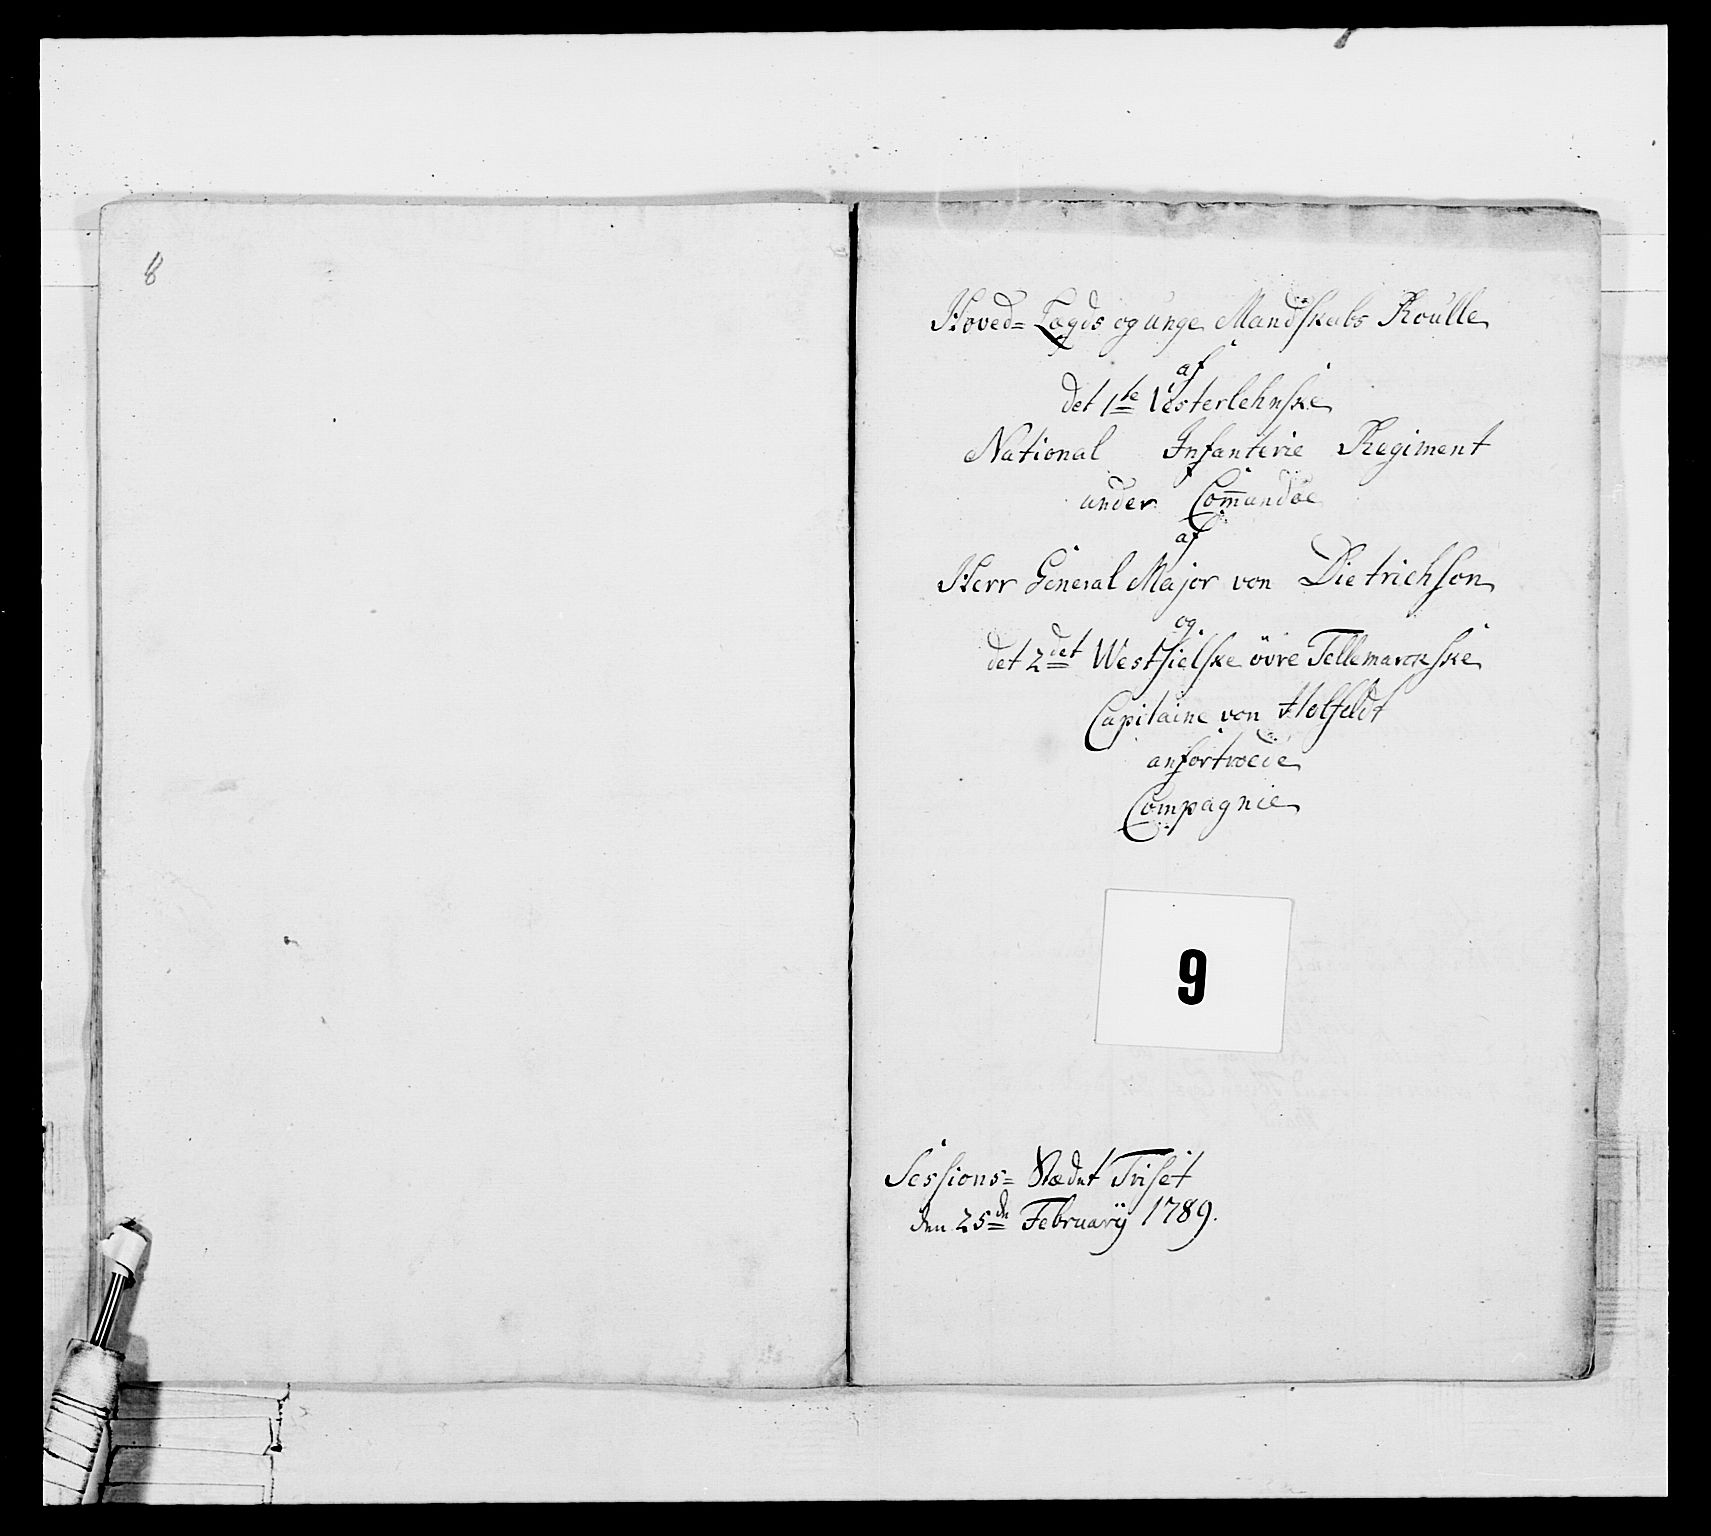 8
Hoved= Lægds og unge Mandskabs Roulle
af
det 1te Vesterlehnske
National Infanterie Regiment
under Com̅andoe
af
Herr General Major von Dietrichson
og
det 2det Westfielske övre Tellemarckske
Capitaine von Holfeldt
anfortroede
Compagnie
9
Sessions= Stædet Triset
den 25de Februarÿ 1789.